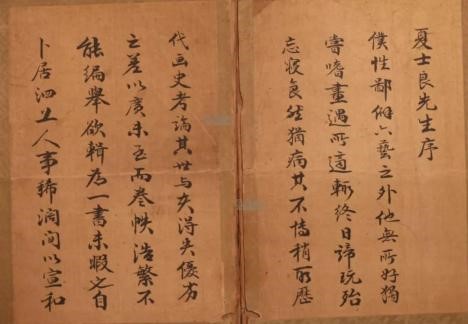 夏士良先生序
僕性鄙僻六藝之外他無所好獨
嘗嗜畫遇所適輒終日諦玩殆
忘寝食然猶病其不博稍取歷
代画史考論其世與夫得失優劣
之差以廣未至而卷帙浩繁不
能編舉欲輯為一書未暇也自
卜居泗上人事稀闊間以宣和